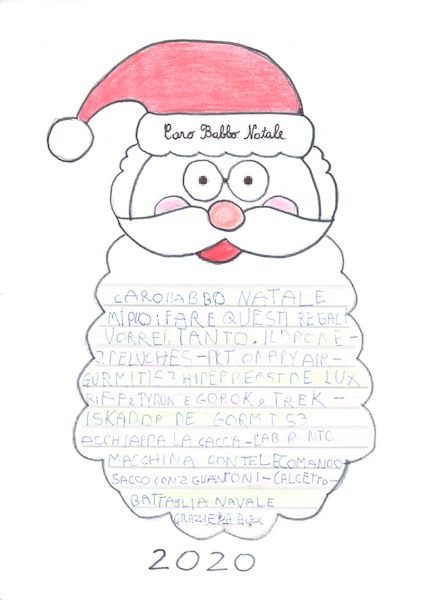 Caro Babbo Natale
CARO BABBO NATALE
MI PUOI FARE QUESTI REGALI
VORREI TANTO. IL DRONE-
2 PELUCHES-
GORMITI S3 HIPERBEAST DE LUX
RIFF e PYRON e GOROK e TREK-
ISKADOR DE GORMITI S3
ACCHIAPPA LA CACCA-LABIRINTO
MACCHINA CON TELECOMANDO
SACCO CON 2 GUANTONI-CALCETTO-
BATTAGLIA NAVALE
GRAZIE DA ALEX
2020